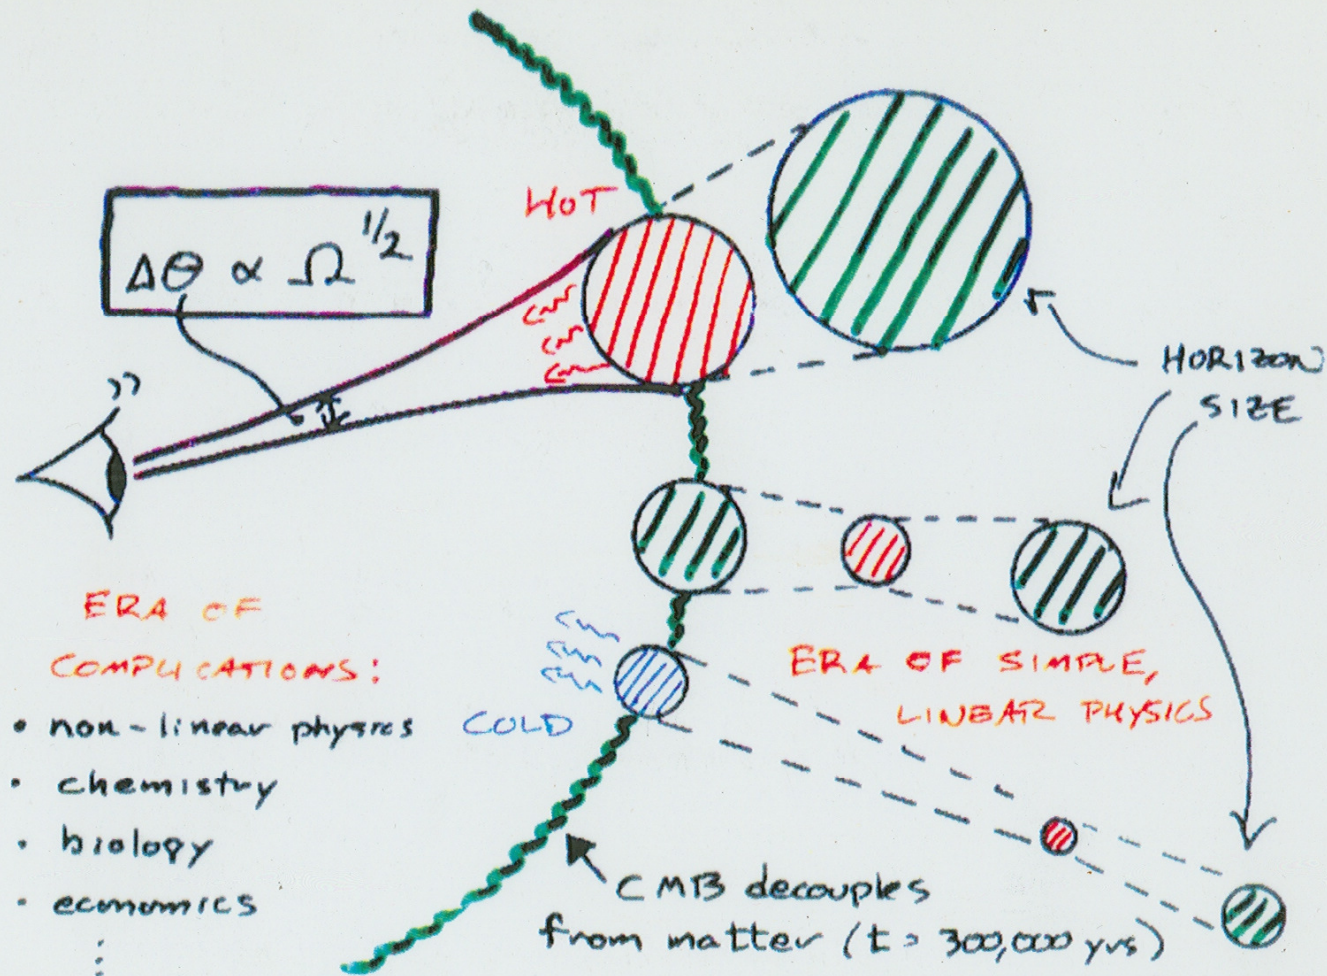 HOT
Δθ ∝ Ω^1/2
HORIZON
SIZE
ERA OF
COMPLICATIONS:
• non-linear physics
• chemistry
• biology
• economics
⋮
COLD
ERA OF SIMPLE,
LINEAR PHYSICS
CMB decouples
from matter (t = 300,000 yrs)